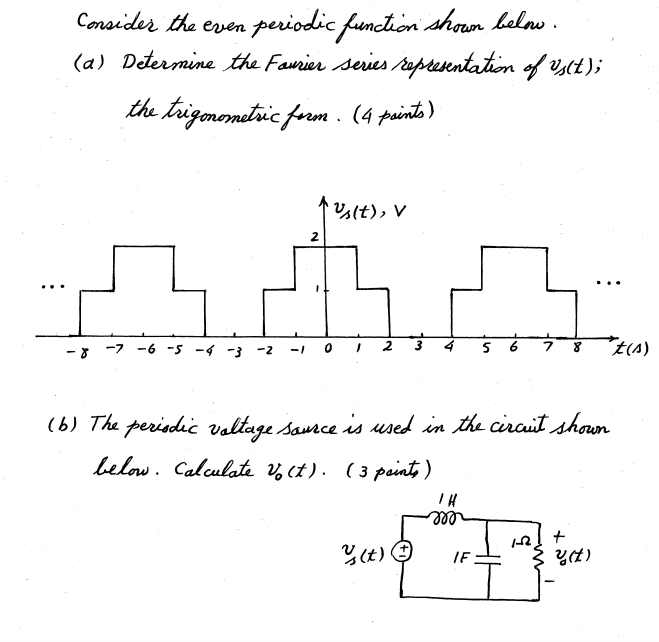 Consider the even periodic function shown below.
(a) Determine the Fourier series representation of vs(t);
the trigonometric form. (4 points)
vs(t), V
2
1
... ...
-8 -7 -6 -5 -4 -3 -2 -1 0 1 2 3 4 5 6 7 8 t(s)
(b) The periodic voltage source is used in the circuit shown
below. Calculate vo(t). (3 points)
1 H
vs(t) + - 1F 1Ω + vo(t) -